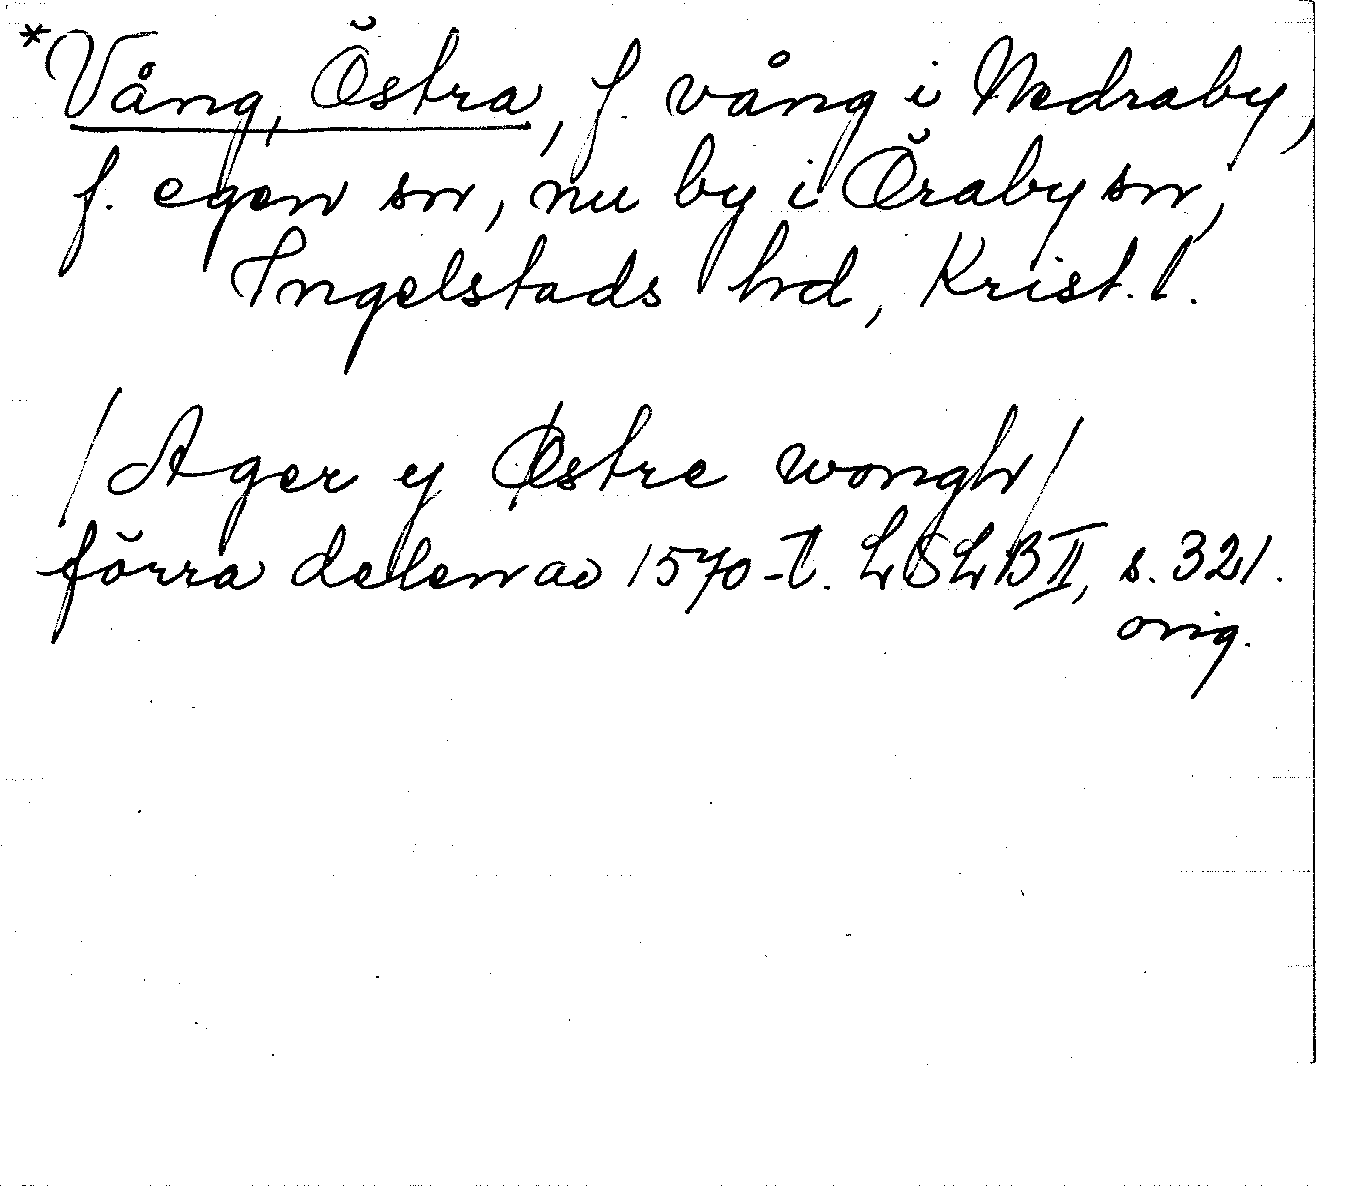 *Vång, Östra, f. vång i Nedraby,
f. egen sn, nu by i Öraby sn,
Ingelstads hd, Krist. l.
/Ager y Østre wongh/
förra delen av 1570-t. LSLB II, s. 321.
orig.